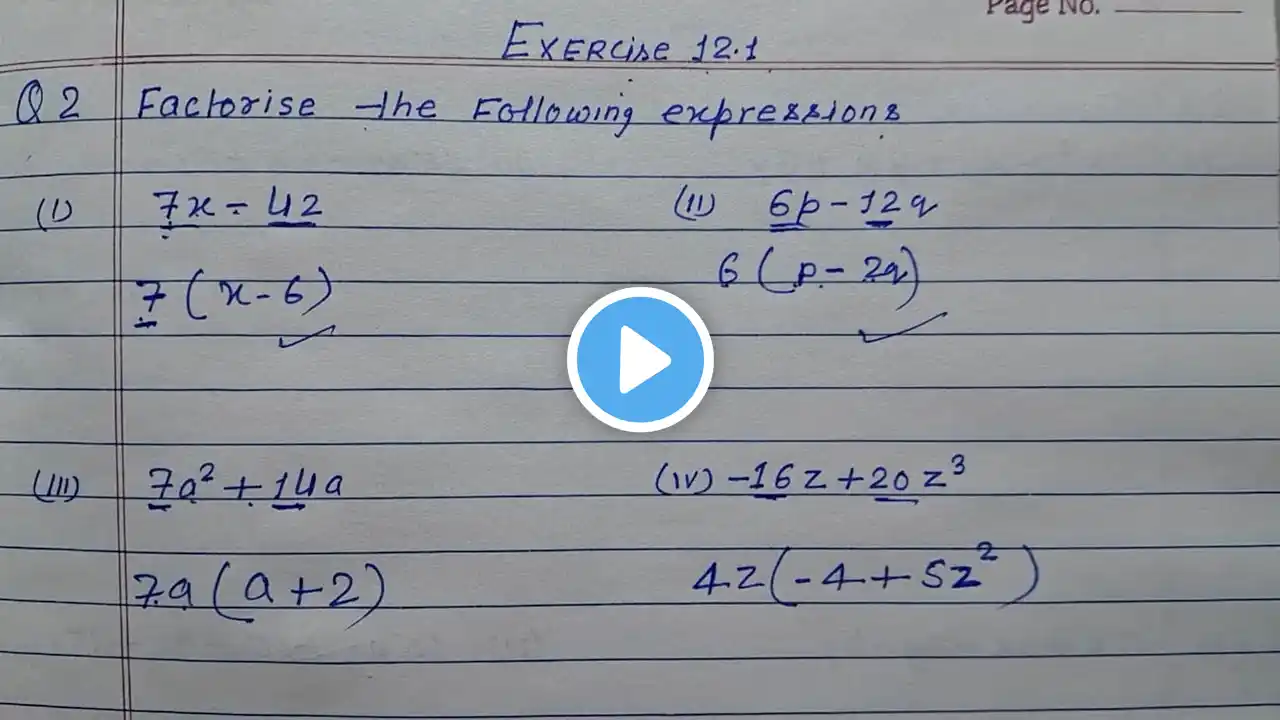 Page No.
Exercise 12.1
Q 2 Factorise the Following expressions
(I) 7x - 42 (II) 6p - 12q
7 (x - 6) 6 (p - 2q)
(III) 7a² + 14a (IV) -16z + 20z³
7a (a + 2) 4z (-4 + 5z²)